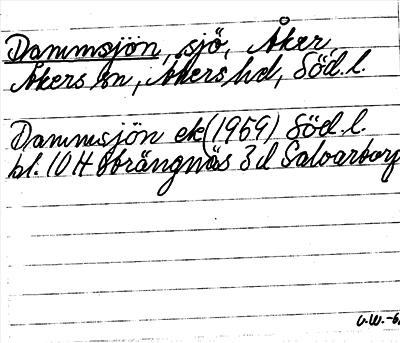 Dammsjön, sjö, Åker,
Åkers sn, Åkers hd, Söd. l.
Dammsjön ek (1959) Söd. l.
bl. 10 H Strängnäs 3 d